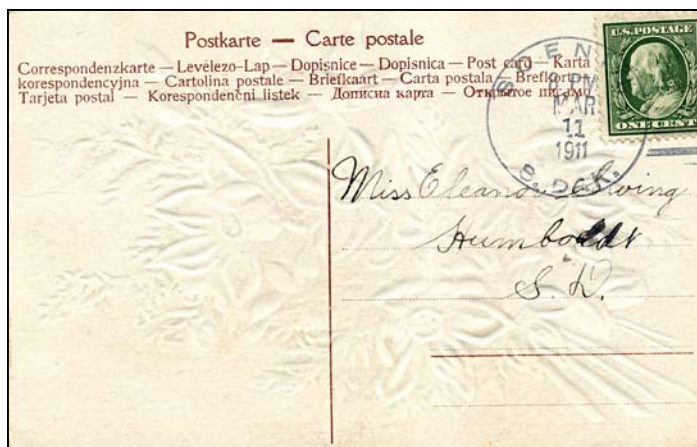 Postkarte — Carte postale
Correspondenzkarte — Levélezo-Lap — Dopisnice — Dopisnica — Post card — Karta
korespondencyjna — Cartolina postale — Briefkaart — Carta postala — Brefkort
Tarjeta postal — Korespondenčni listek — Дописна карта — Открытое письмо
U.S. POSTAGE
ONE CENT
MAR
11
1911
S. DAK.
Miss Eleanor Ewing
Humboldt
S. D.